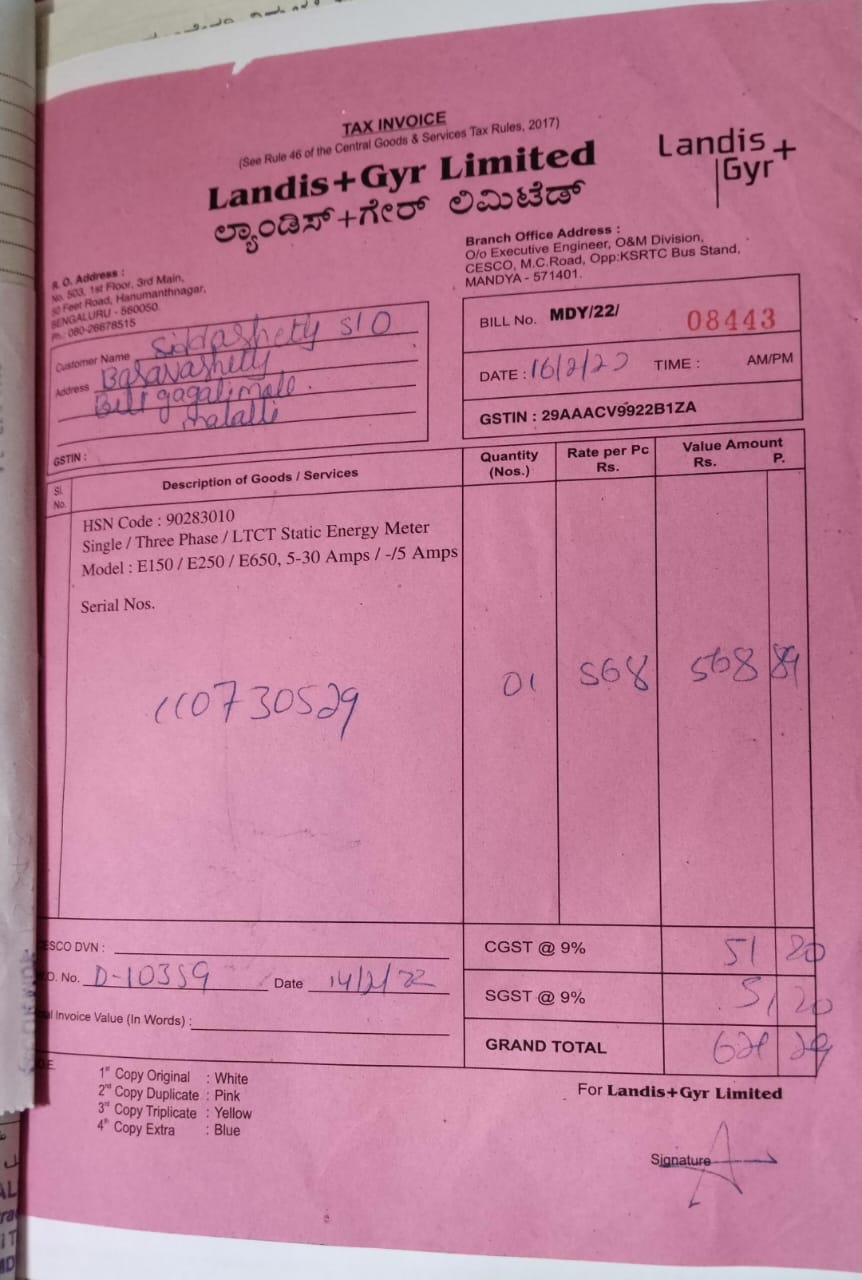 TAX INVOICE
(See Rule 46 of the Central Goods & Services Tax Rules, 2017)
Landis+Gyr Limited
ಲ್ಯಾಂಡಿಸ್+ಗೇರ್ ಲಿಮಿಟೆಡ್
Landis+
Gyr
R. O. Address :
No. 503, 1st Floor, 3rd Main,
50 Feet Road, Hanumanthnagar,
BENGALURU - 560050.
Ph.: 080-26678515
Branch Office Address :
O/o Executive Engineer, O&M Division,
CESCO, M.C.Road, Opp:KSRTC Bus Stand,
MANDYA - 571401.
Customer Name Siddashetty S/O
Address Basavashetty
Malalli
GSTIN :
BILL No. MDY/22/ 08443
DATE : 16/2/22 TIME : AM/PM
GSTIN : 29AAACV9922B1ZA
Sl. No. Description of Goods / Services Quantity (Nos.) Rate per Pc Rs. Value Amount Rs. P.
HSN Code : 90283010
Single / Three Phase / LTCT Static Energy Meter
Model : E150 / E250 / E650, 5-30 Amps / -/5 Amps
Serial Nos.
110730529 01 568 568 89
ESCO DVN :
O. No. D-10359 Date 14/2/22
al Invoice Value (In Words) :
CGST @ 9% 51 20
SGST @ 9% 51 20
GRAND TOTAL 671 29
1st Copy Original : White
2nd Copy Duplicate : Pink
3rd Copy Triplicate : Yellow
4th Copy Extra : Blue
For Landis+Gyr Limited
Signature